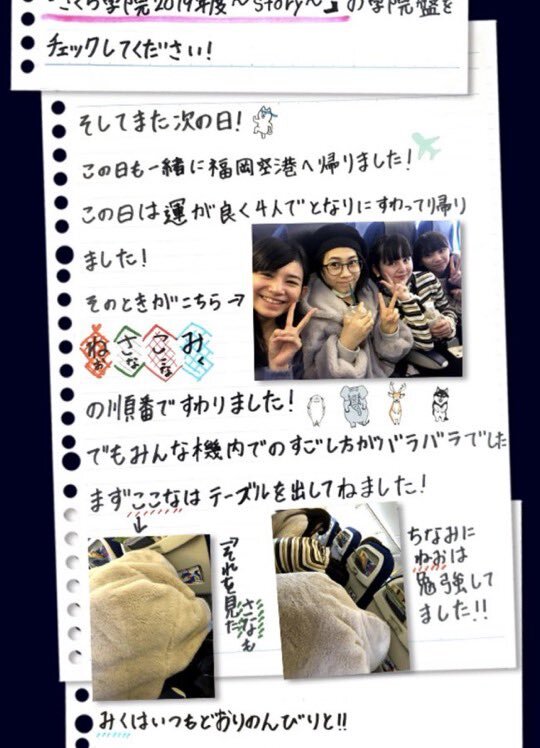 「さくら学院2019年度〜Story〜」の学院盤を
チェックしてください!
そしてまた次の日!
この日も一緒に福岡空港へ帰りました!
この日は運が良く4人でとなりにすわって帰り
ました!
そのときがこちら→
ねお さな ここな みく
の順番ですわりました!
でもみんな機内でのすごし方がバラバラでした
まずここなはテーブルを出してねました!
↓
→それを見た
さなも
ちなみに
ねおは
勉強して
ました!!
みくはいつもどおりのんびりと!!